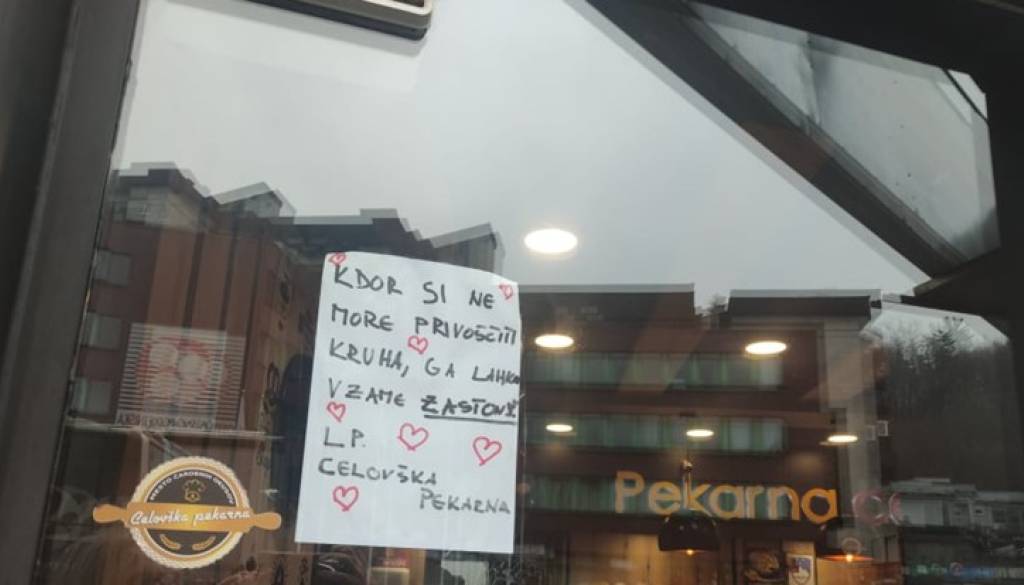 KDOR SI NE
MORE PRIVOŠČITI
KRUHA, GA LAHKO
VZAME ZASTONJ
L.P.
CELOVŠKA
PEKARNA
Celovška pekarna
Pekarna